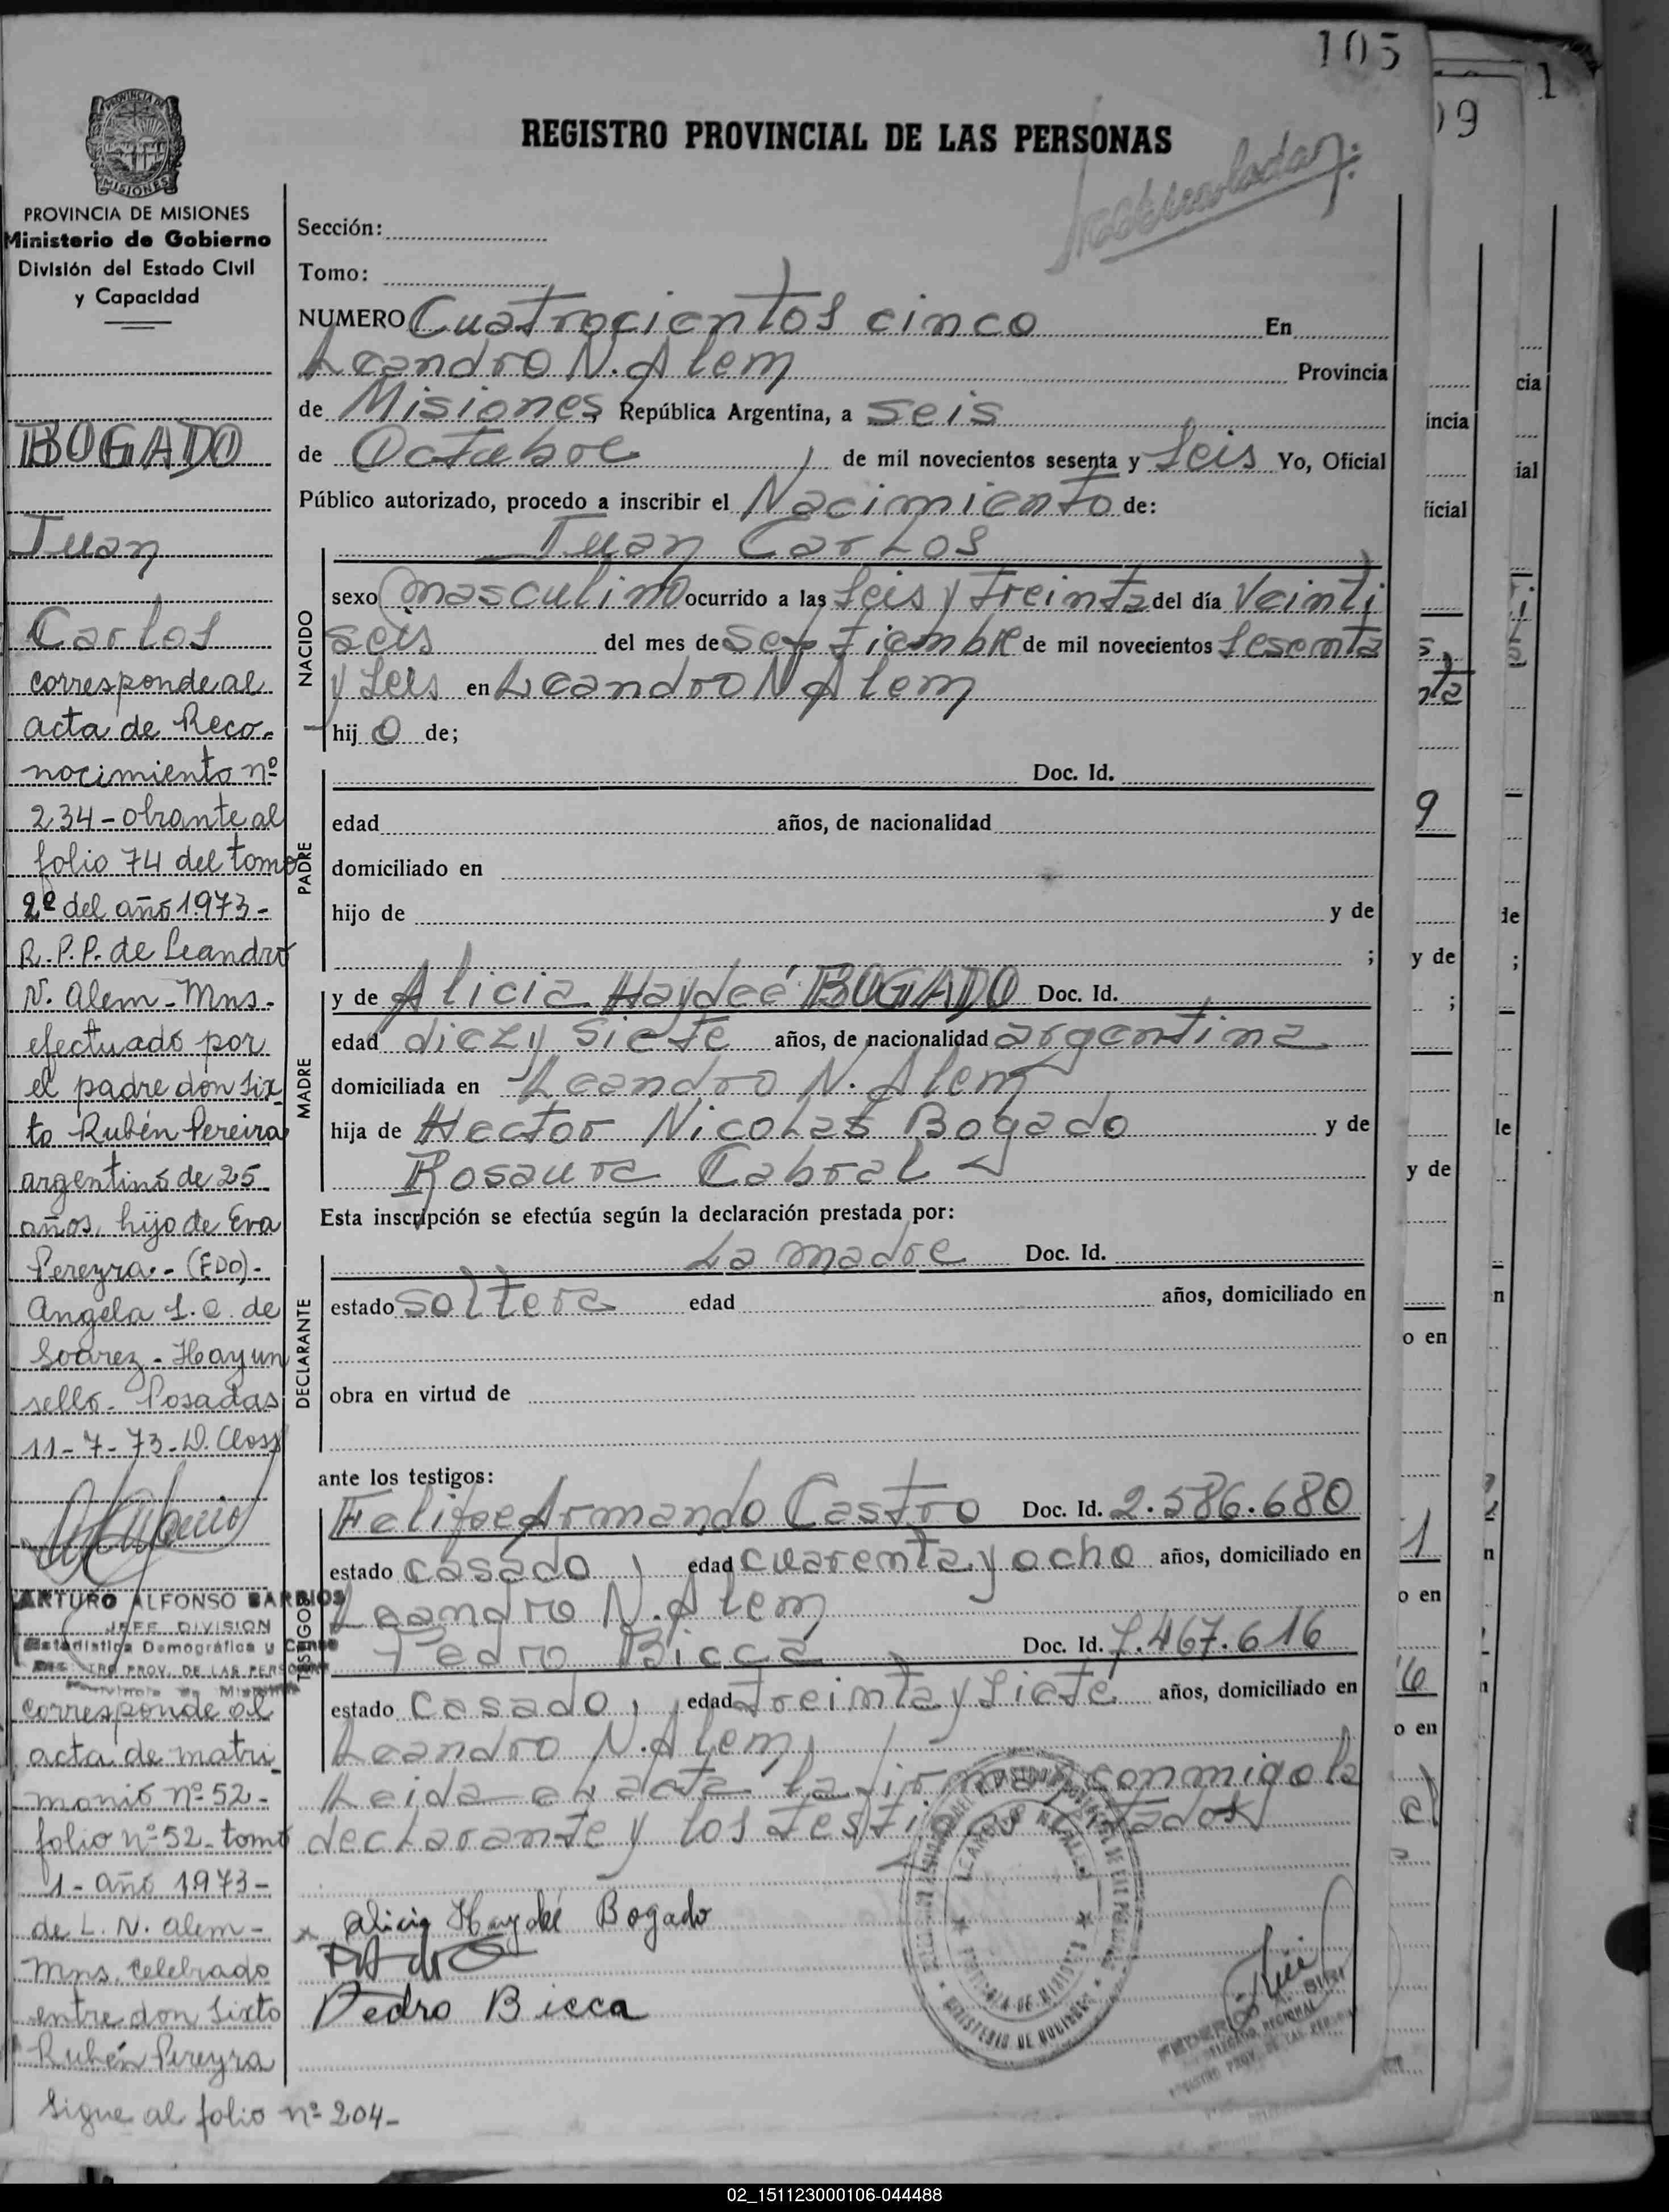 105
REGISTRO PROVINCIAL DE LAS PERSONAS
PROVINCIA DE MISIONES
Ministerio de Gobierno
División del Estado Civil
y Capacidad
BOGADO
Juan
Carlos
corresponde al
acta de Reco-
nocimiento nº
234 - obrante al
folio 74 del tomo
2º del año 1973 -
R.P.P. de Leandro
N. Alem - Mns -
efectuado por
el padre don Six
to Rubén Pereira
argentino de 25
años, hijo de Eva
Pereyra - (FDO) -
Angela S. C. de
Soarez - Hay un
sello - Posadas
11 - 7 - 73 - W. Closs
ARTURO ALFONSO BARRIOS
JEFE DIVISION
Estadística Demográfica y Censo
REGISTRO PROV. DE LAS PERSONAS
Corresponde al
acta de matri
monio nº 52 -
folio nº 52 - tomo
1 - año 1973 -
de L. N. Alem -
Mns. Celebrado
entre don Sixto
Rubén Pereyra
Sigue al folio nº 204 -
Sección:
Tomo:
NUMERO Cuatrocientos cinco En
Leandro N. Alem Provincia
de Misiones, República Argentina, a seis
de Octubre, de mil novecientos sesenta y Seis Yo, Oficial
Público autorizado, procedo a inscribir el Nacimiento de:
Juan Carlos
NACIDO
sexo masculino ocurrido a las Seis y treinta del día Veinti
seis del mes de Septiembre de mil novecientos Sesenta
y Seis en Leandro N Alem
hijo de;
PADRE
Doc. Id.
edad años, de nacionalidad
domiciliado en
hijo de y de
;
MADRE
y de Alicia Haydeé BOGADO Doc. Id.
edad diez y siete años, de nacionalidad argentina
domiciliada en Leandro N. Alem
hija de Hector Nicolas Bogado y de
Rosaura Cabral
Esta inscripción se efectúa según la declaración prestada por:
DECLARANTE
La madre Doc. Id.
estado soltera edad años, domiciliado en
obra en virtud de
ante los testigos:
TESTIGOS
Felipe Armando Castro Doc. Id. 2.586.680
estado casado, edad cuarenta y ocho años, domiciliado en
Leandro N. Alem
Pedro Bicca Doc. Id. 7.467.616
estado casado, edad treinta y Siete años, domiciliado en
Leandro N. Alem,
Leida el acta la firman conmigo la
declarante y los testigos citados
Alicia Haydeé Bogado
Pedro Bicca
02_151123000106-044488